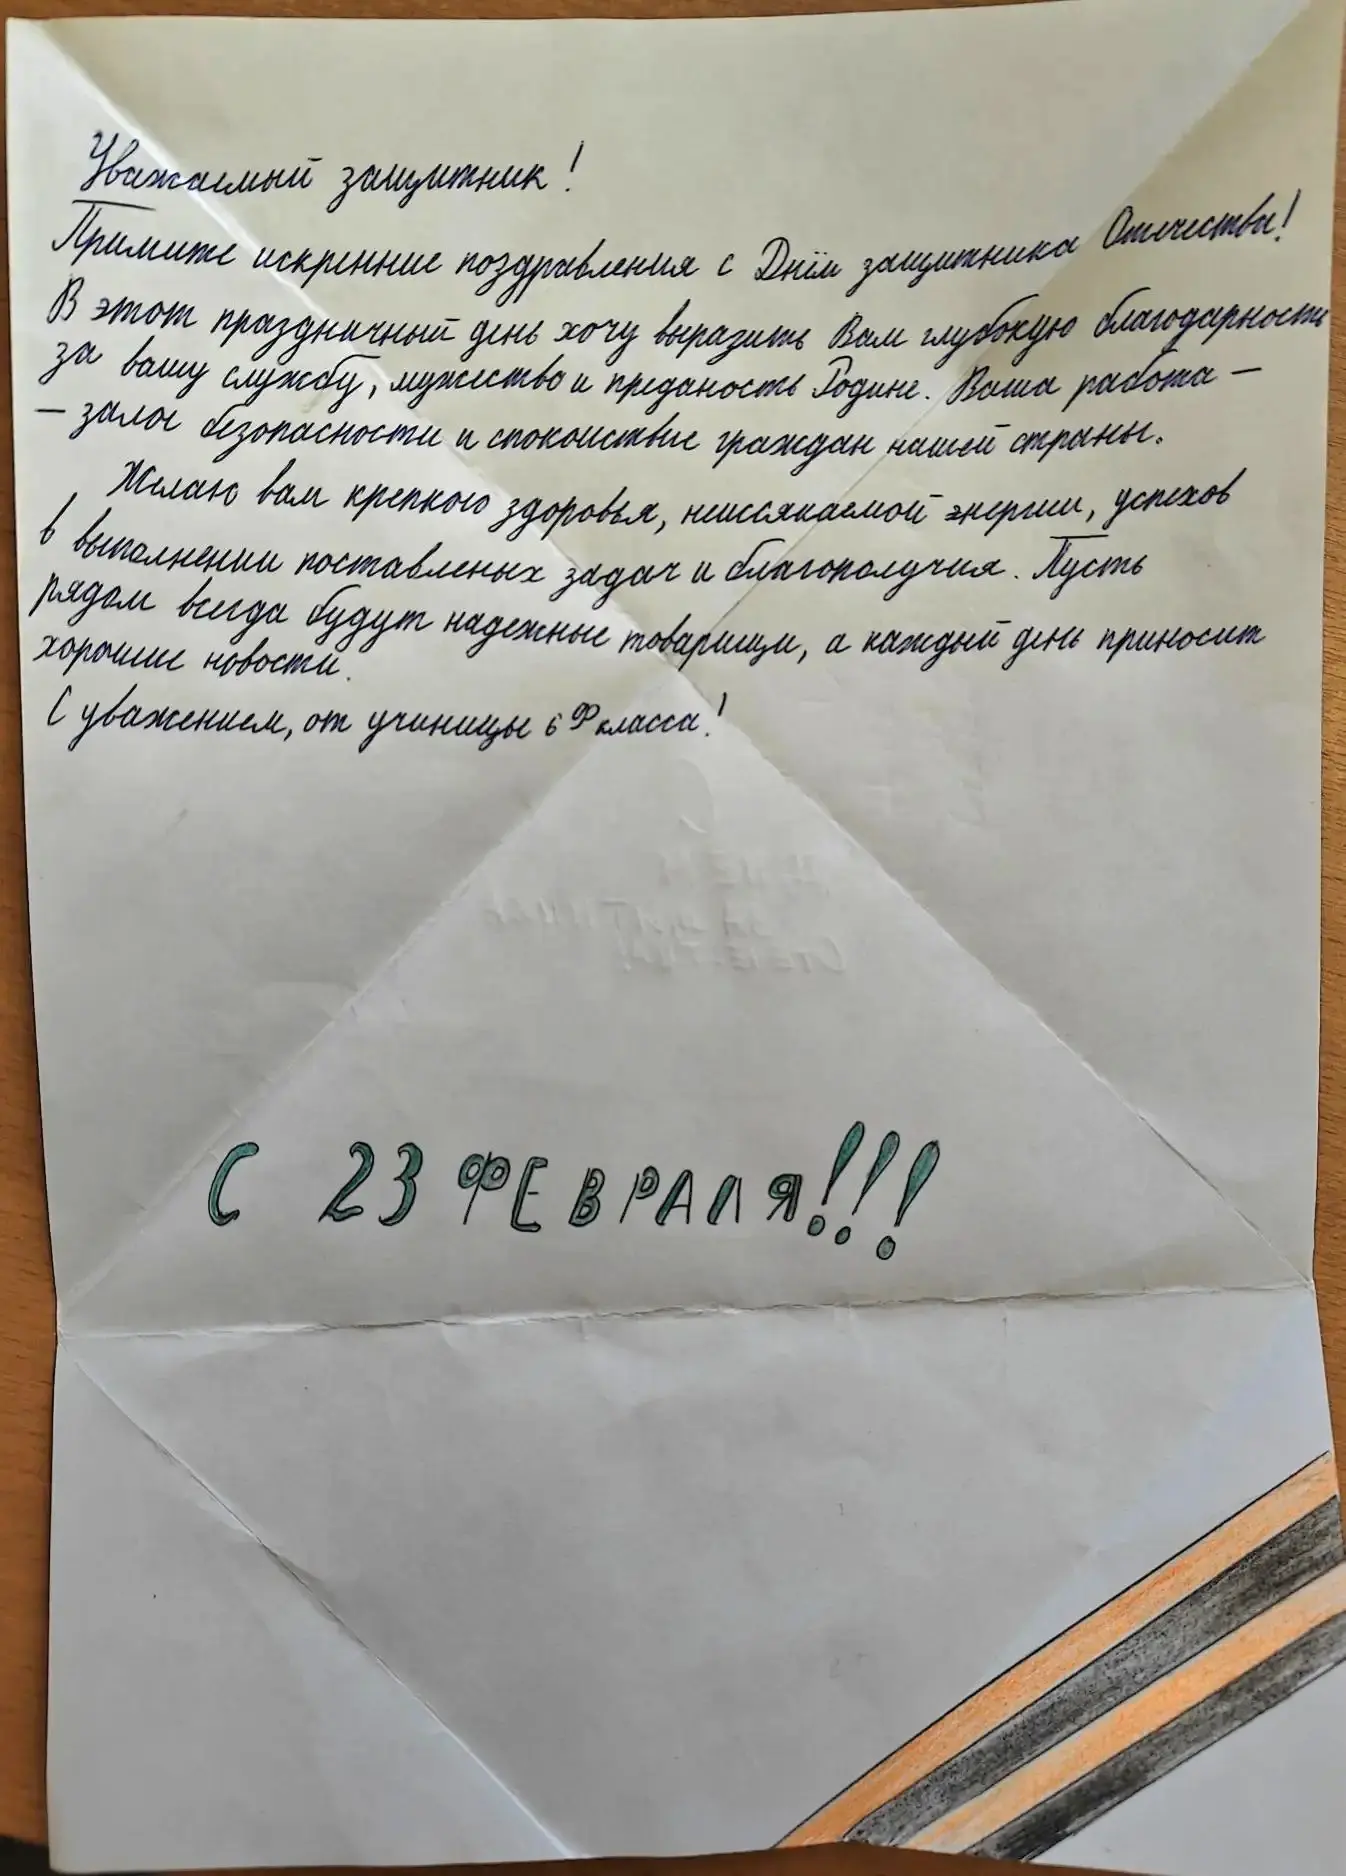 Уважаемый защитник!
Примите искренние поздравления с Днём защитника Отечества!
В этот праздничный день хочу выразить Вам глубокую благодарность
за вашу службу, мужество и преданость Родине. Ваша работа –
– залог безопасности и спокойствие граждан нашей страны.
Желаю вам крепкого здоровья, неиссякаемой энергии, успехов
в выполнении поставленых задач и благополучия. Пусть
рядом всегда будут надежные товарищи, а каждый день приносит
хорошие новости.
С уважением, от учиницы 6 Ф класса!
С 23 ФЕВРАЛЯ!!!